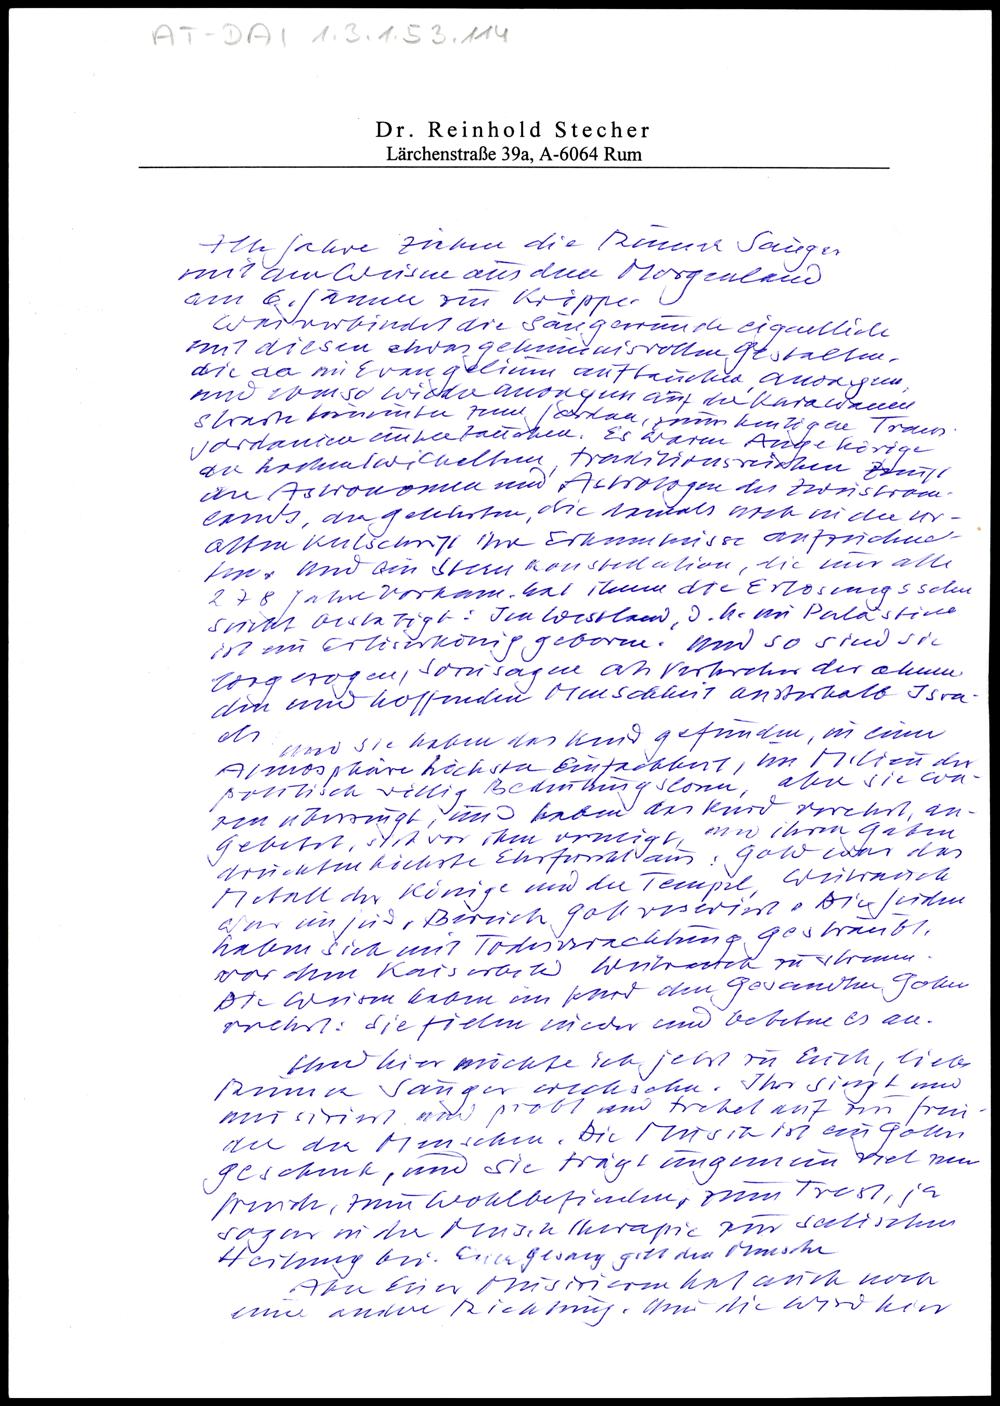 AT-DAI 1.3.1.53.114
Dr. Reinhold Stecher
Lärchenstraße 39a, A-6064 Rum
Alle Jahre ziehen die Rumer Sänger
mit den Weisen aus dem Morgenland
am 6. Jänner zur Krippe.
Was verbindet die Sängerrunde eigentlich
mit diesen etwas geheimnisvollen Gestalten,
die da im Evangelium auftauchen, anonym,
und ebenso wieder anonym auf die Karawanen
strasse hinunter zum Jordan, zum heutigen Trans
jordanien untertauchen. Es waren Angehörige
der hochentwickelten, traditionsreichen Zunft
der Astronomen und Astrologen des Zweistrom-
lands, der Gelehrten, die damals noch in der ur-
alten Keilschrift ihre Erkenntnisse aufzeichne-
ten. Und ein Sternkonstellation, die nur alle
278 Jahre vorkam, hat ihnen die Erlösungssehn
sucht bestätigt: Im Westland, d. h. in Palästina
ist ein Erlöserkönig geboren. Und so sind sie
losgezogen, sozusagen als Vorboten der ahnen
den und hoffenden Menschheit ausserhalb Isra-
els
Und sie haben das Kind gefunden, in einer
Atmosphäre höchster Einfachheit, im Milieu der
politisch völlig Bedeutungslosen, aber sie wa-
ren überzeugt, und haben das Kind verehrt, an-
gebetet, sich vor ihm verneigt, und ihre Gaben
drückten höchste Ehrfurcht aus: Gold war das
Metall der Könige und der Tempel, Weihrauch
war im jüd. Bereich Gott reserviert. Die Juden
haben sich mit Todesverachtung gesträubt,
vor dem Kaiserbild Weihrauch zu streuen.
Die Weisen haben im Kind den Gesandten Gottes
verehrt: Sie fielen nieder und beteten es an.
Und hier möchte ich jetzt zu Euch, liebe
Rumer Sänger wechseln. Ihr singt und
musiziert und probt und tretet auf zur Freu-
de der Menschen. Die Musik ist ein Gottes
geschenk, und sie trägt ungemein viel zur
Freude, zum Wohlbefinden, zum Trost, ja
sogar in der Musiktherapie zur seelischen
Heilung bei. Euer Gesang gilt den Menschen
Aber Euer Musizieren hat auch noch
eine andere Richtung. Und die wird hier